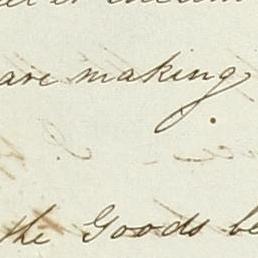 are making
the Goods be